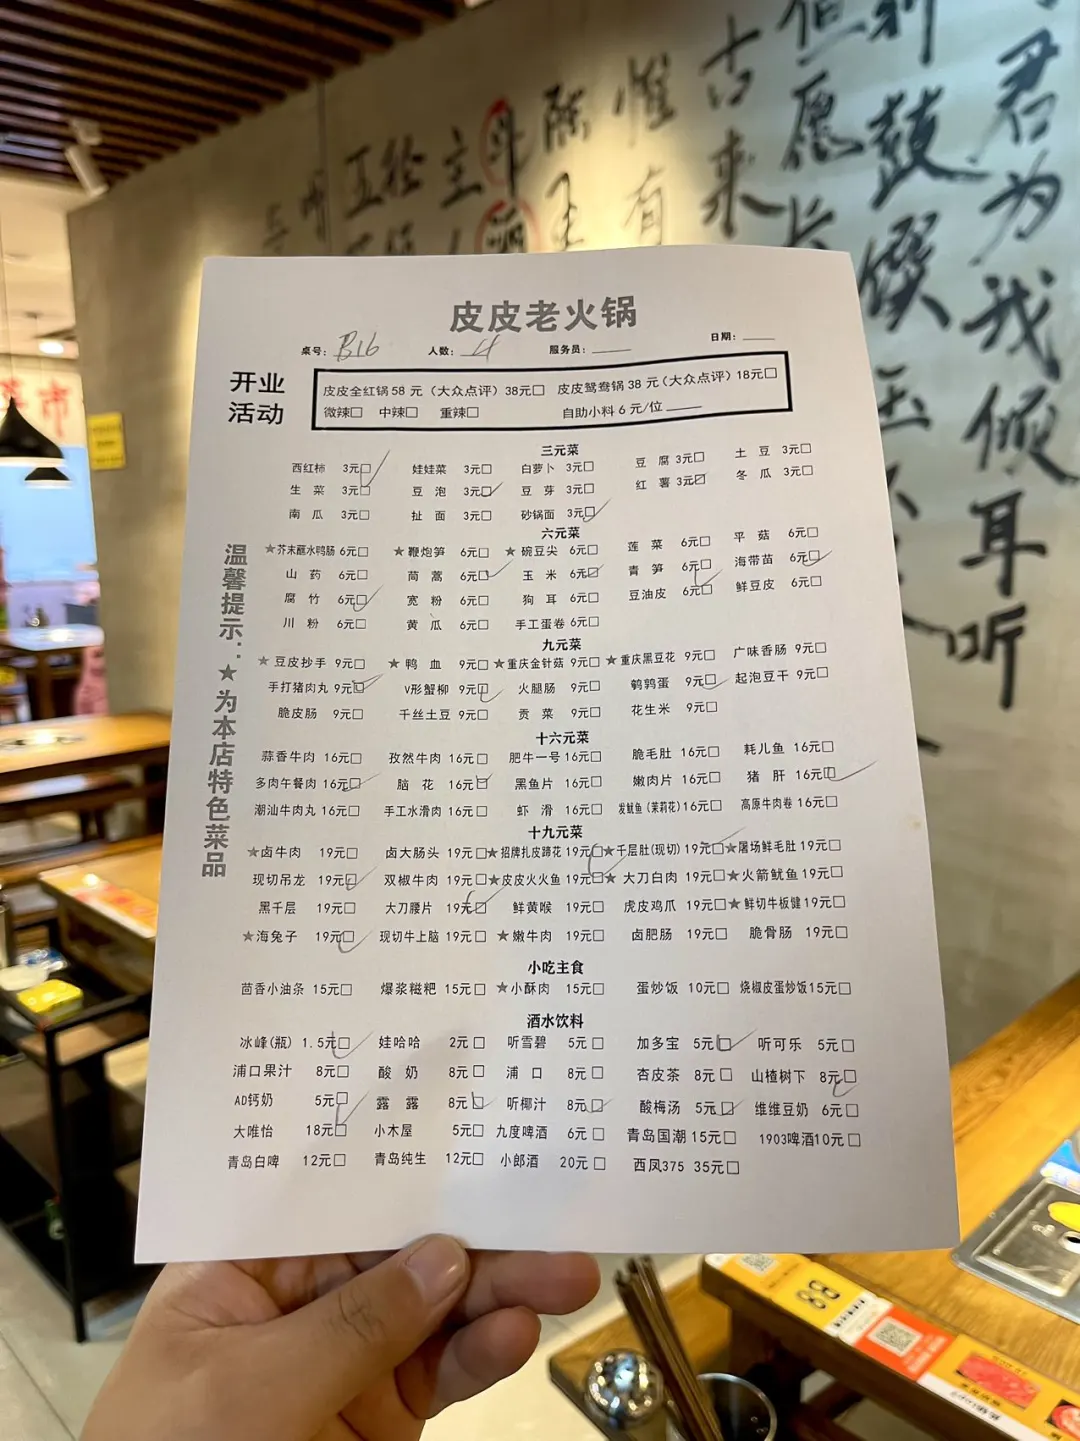 古来
惟有
陈王
主
斗酒
五
但愿长
鼓馔玉
君为我倾耳听
市
皮皮老火锅
桌号: B16 人数: 4 服务员: 日期:
开业活动
皮皮全红锅58元（大众点评）38元□ 皮皮鸳鸯锅38元（大众点评）18元□
微辣□ 中辣□ 重辣□ 自助小料6元/位
温馨提示：★为本店特色菜品
三元菜
西红柿 3元□ 娃娃菜 3元□ 白萝卜 3元□ 豆腐 3元□ 土豆 3元□
生菜 3元□ 豆泡 3元□ 豆芽 3元□ 红薯 3元□ 冬瓜 3元□
南瓜 3元□ 扯面 3元□ 砂锅面 3元□
六元菜
★芥末蘸水鸭肠 6元□ ★鞭炮笋 6元□ ★碗豆尖 6元□ 莲菜 6元□ 平菇 6元□
山药 6元□ 茼蒿 6元□ 玉米 6元□ 青笋 6元□ 海带苗 6元□
腐竹 6元□ 宽粉 6元□ 狗耳 6元□ 豆油皮 6元□ 鲜豆皮 6元□
川粉 6元□ 黄瓜 6元□ 手工蛋卷 6元□
九元菜
★豆皮抄手 9元□ ★鸭血 9元□ ★重庆金针菇 9元□ ★重庆黑豆花 9元□ 广味香肠 9元□
手打猪肉丸 9元□ V形蟹柳 9元□ 火腿肠 9元□ 鹌鹑蛋 9元□ 起泡豆干 9元□
脆皮肠 9元□ 千丝土豆 9元□ 贡菜 9元□ 花生米 9元□
十六元菜
蒜香牛肉 16元□ 孜然牛肉 16元□ 肥牛一号 16元□ 脆毛肚 16元□ 耗儿鱼 16元□
多肉午餐肉 16元□ 脑花 16元□ 黑鱼片 16元□ 嫩肉片 16元□ 猪肝 16元□
潮汕牛肉丸 16元□ 手工水滑肉 16元□ 虾滑 16元□ 发鱿鱼(茉莉花) 16元□ 高原牛肉卷 16元□
十九元菜
★卤牛肉 19元□ 卤大肠头 19元□ ★招牌扎皮蹄花 19元□ ★千层肚(现切) 19元□ ★屠场鲜毛肚 19元□
现切吊龙 19元□ 双椒牛肉 19元□ ★皮皮火火鱼 19元□ ★大刀白肉 19元□ ★火箭鱿鱼 19元□
黑千层 19元□ 大刀腰片 19元□ 鲜黄喉 19元□ 虎皮鸡爪 19元□ ★鲜切牛板健 19元□
★海兔子 19元□ 现切牛上脑 19元□ ★嫩牛肉 19元□ 卤肥肠 19元□ 脆骨肠 19元□
小吃主食
茴香小油条 15元□ 爆浆糍粑 15元□ ★小酥肉 15元□ 蛋炒饭 10元□ 烧椒皮蛋炒饭15元□
酒水饮料
冰峰(瓶) 1.5元□ 娃哈哈 2元□ 听雪碧 5元□ 加多宝 5元□ 听可乐 5元□
浦口果汁 8元□ 酸奶 8元□ 浦口 8元□ 杏皮茶 8元□ 山楂树下 8元□
AD钙奶 5元□ 露露 8元□ 听椰汁 8元□ 酸梅汤 5元□ 维维豆奶 6元□
大唯怡 18元□ 小木屋 5元□ 九度啤酒 6元□ 青岛国潮 15元□ 1903啤酒10元□
青岛白啤 12元□ 青岛纯生 12元□ 小郎酒 20元□ 西凤375 35元□
B8